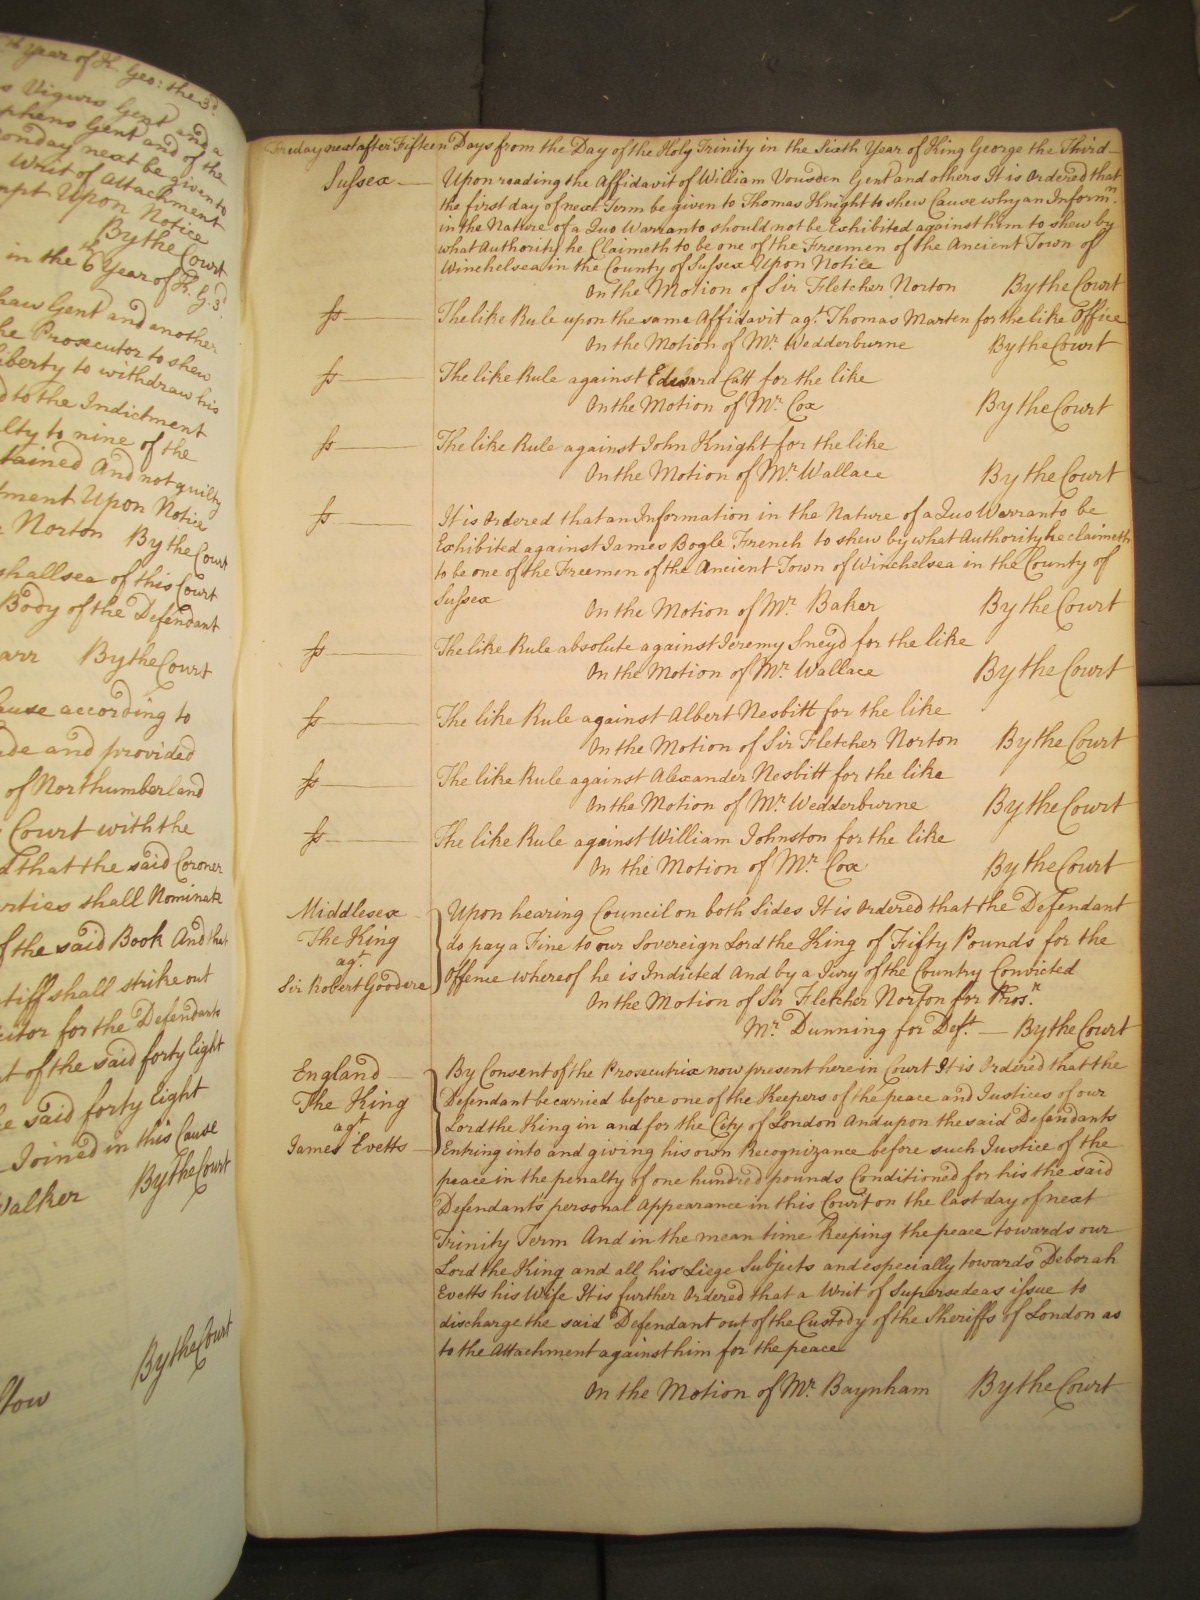 th Year of K Geo: the 3d.
s Vigurs Gent and a
phens Gent and of the
onday next be given to
Writ of Attachment
mpt Upon Notice
By the Court
in the 6th Year of K. G. 3d.
haw Gent and another
he Prosecutor to shew
liberty to withdraw his
d to the Indictment
ilty to nine of the
tained And not guilty
tment Upon Notice
Norton By the Court
shallsea of this Court
Body of the Defendant
arr By the Court
ause according to
ade and provided
of Northumberland
Court with the
d that the said Coroner
arties shall Nominate
of the said Book And that
ntiff shall strike out
icitor for the Defendants
t of the said forty Eight
he said forty Eight
Joined in this Cause
Walker By the Court
By the Court
llow
Friday next after Fifteen Days from the Day of the Holy Trinity in the Sixth Year of King George the Third
Sussex Upon reading the Affidavit of William Vousden Gent and others It is Ordered that
the first day of next Term be given to Thomas Knight to shew Cause why an Informn.
in the Nature of a Quo Warranto should not be Exhibited against him to shew by
what Authority he Claimeth to be one of the Freemen of the Ancient Town of
Winchelsea in the County of Sussex Upon Notice
On the Motion of Sir Fletcher Norton By the Court
ss The like Rule upon the same Affidavit agt. Thomas Marten for the like Office
On the Motion of Mr. Wedderburne By the Court
ss The like Rule against Edward Catt for the like
On the Motion of Mr. Cox By the Court
ss The like Rule against John Knight for the like
On the Motion of Mr. Wallace By the Court
ss It is Ordered that an Information in the Nature of a Quo Warranto be
Exhibited against James Bogle French to shew by what Authority he claimeth
to be one of the Freemen of the Ancient Town of Winchelsea in the County of
Sussex On the Motion of Mr. Baker By the Court
ss The like Rule absolute against Jeremy Sneyd for the like
On the Motion of Mr. Wallace By the Court
ss The like Rule against Albert Nesbitt for the like
On the Motion of Sir Fletcher Norton By the Court
ss The like Rule against Alexander Nesbitt for the like
On the Motion of Mr. Wedderburne By the Court
ss The like Rule against William Johnston for the like
On the Motion of Mr. Cox By the Court
Middlesex Upon hearing Council on both Sides It is Ordered that the Defendant
The King do pay a Fine to our Sovereign Lord the King of Fifty Pounds for the
agt.
Sir Robert Goodere Offence whereof he is Indicted And by a Jury of the Country Convicted
On the Motion of Sir Fletcher Norton for Prosr.
Mr. Dunning for Deft. By the Court
England By Consent of the Prosecutrix now present here in Court It is Ordered that the
The King Defendant be carried before one of the Keepers of the peace and Justices of our
agt. Lord the King in and for the City of London And upon the said Defendants
James Evetts Entring into and giving his own Recognizance before such Justice of the
peace in the penalty of one hundred pounds Conditioned for his the said
Defendants personal Appearance in this Court on the last day of next
Trinity Term And in the mean time Keeping the peace towards our
Lord the King and all his Liege Subjects and especially towards Deborah
Evetts his Wife It is further Ordered that a Writ of Supersedeas issue to
discharge the said Defendant out of the Custody of the Sheriffs of London as
to the Attachment against him for the peace
On the Motion of Mr. Baynham By the Court